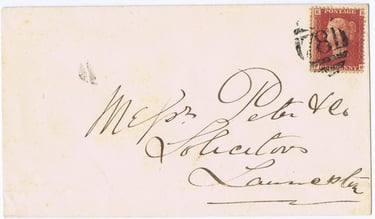 POSTAGE
78
Messrs Peter & Co
Solicitors
Launceston